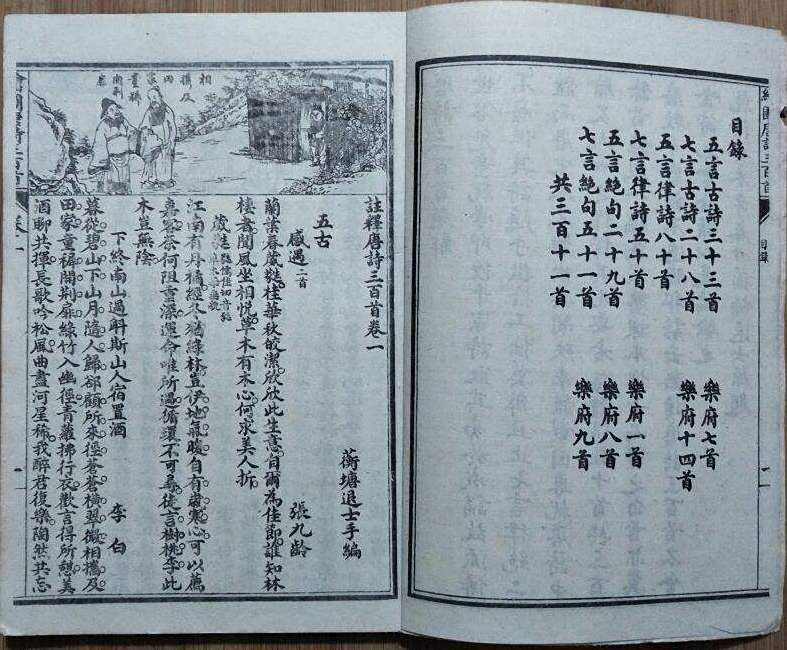 繪圖唐詩三百首 目錄 一
目錄
五言古詩三十三首 樂府七首
七言古詩二十八首 樂府十四首
五言律詩八十首
七言律詩五十首 樂府一首
五言絕句二十九首 樂府八首
七言絕句五十一首 樂府九首
共三百十一首
相攜及田家童稚開荆扉
註釋唐詩三百首卷一
蘅塘退士手編
五古
感遇二首 張九齡
蘭葉春葳蕤桂華秋皎潔欣欣此生意自爾為佳節誰知林
棲者聞風坐相悅草木有本心何求美人折
葳蕤
江南有丹橘經冬猶綠林豈伊地氣暖自有歲寒心可以薦
嘉客奈何阻重深運命唯所遇循環不可尋徒言樹桃李此
木豈無陰
下終南山過斛斯山人宿置酒 李白
暮從碧山下山月隨人歸卻顧所來徑蒼蒼橫翠微相攜及
田家童稚開荆扉綠竹入幽徑青蘿拂行衣歡言得所憩美
酒聊共揮長歌吟松風曲盡河星稀我醉君復樂陶然共忘
繪圖唐詩三百首 卷一 一